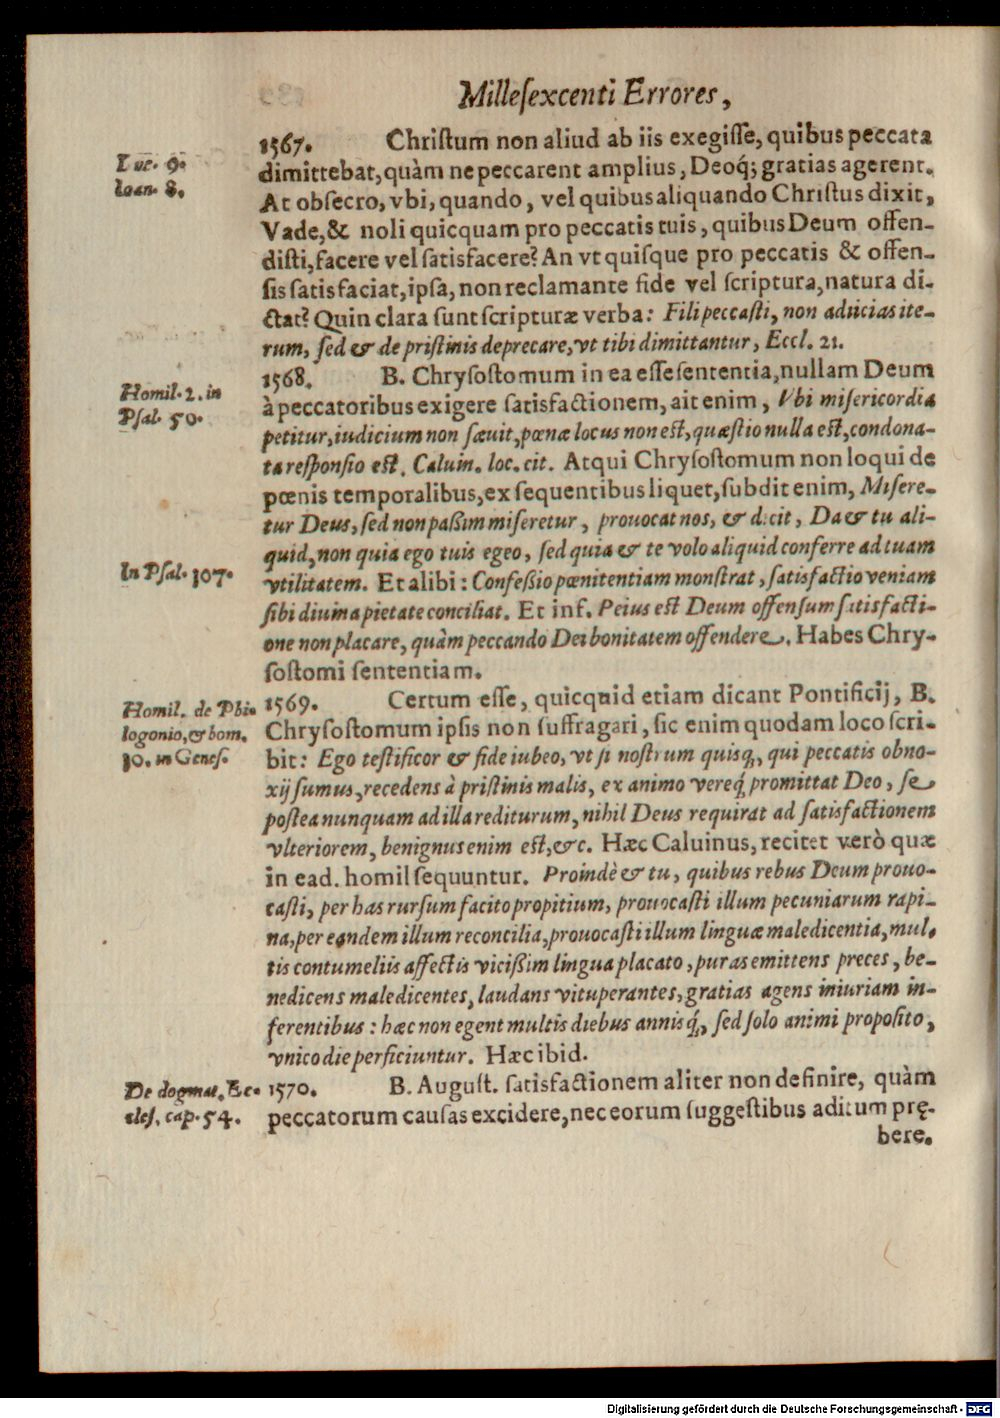 Milleſexcenti Errores,
1567. Chriſtum non aliud ab iis exegiſſe, quibus peccata
Luc. 9.
dimittebat, quàm ne peccarent amplius, Deoq́; gratias agerent.
Ioan. 8.
At obſecro, vbi, quando, vel quibus aliquando Chriſtus dixit,
Vade, & noli quicquam pro peccatis tuis, quibus Deum offen-
diſti, facere vel ſatisfacere? An vt quiſque pro peccatis & offen-
ſis ſatisfaciat, ipſa, non reclamante fide vel ſcriptura, natura di-
ctat? Quin clara ſunt ſcripturæ verba: Fili peccaſti, non adiicias ite-
rum, ſed & de priſtinis deprecare, vt tibi dimittantur, Eccl. 21.
1568. B. Chryſoſtomum in ea eſſe ſententia, nullam Deum
Homil. 2. in
à peccatoribus exigere ſatisfactionem, ait enim, Vbi miſericordia
Pſal. 50.
petitur, iudicium non ſæuit, pœnæ locus non eſt, quæſtio nulla eſt, condona-
ta reſponſio eſt. Caluin. loc. cit. Atqui Chryſoſtomum non loqui de
pœnis temporalibus, ex ſequentibus liquet, ſubdit enim, Miſere-
tur Deus, ſed non paßim miſeretur, prouocat nos, & dicit, Da & tu ali-
quid, non quia ego tuis egeo, ſed quia & te volo aliquid conferre ad tuam
In Pſal. 107.
vtilitatem. Et alibi: Confeßio pœnitentiam monſtrat, ſatisfactio veniam
ſibi diuina pietate conciliat. Et inf. Peius eſt Deum offenſum ſatisfacti-
one non placare, quàm peccando Dei bonitatem offendere. Habes Chry-
ſoſtomi ſententiam.
1569. Certum eſſe, quicquid etiam dicant Pontificij, B.
Homil. de Phi-
Chryſoſtomum ipſis non ſuffragari, ſic enim quodam loco ſcri-
logonio, & hom.
bit: Ego teſtificor & fide iubeo, vt ſi noſtrum quisq́, qui peccatis obno-
10. in Geneſ.
xij ſumus, recedens à priſtinis malis, ex animo vereq́ promittat Deo, ſe
poſtea nunquam ad illa rediturum, nihil Deus requirat ad ſatisfactionem
vlteriorem, benignus enim eſt, &c. Hæc Caluinus, recitet verò quæ
in ead. homil ſequuntur. Proindè & tu, quibus rebus Deum prouo-
caſti, per has rurſum facito propitium, prouocaſti illum pecuniarum rapi-
na, per eandem illum reconcilia, prouocaſti illum linguæ maledicentia, mul-
tis contumeliis affectis viciſſim lingua placato, puras emittens preces, be-
nedicens maledicentes, laudans vituperantes, gratias agens iniuriam in-
ferentibus: hæc non egent multis diebus annisq́, ſed ſolo animi propoſito,
vnico die perficiuntur. Hæc ibid.
1570. B. Auguſt. ſatisfactionem aliter non definire, quàm
De dogmat. Ec-
peccatorum cauſas excidere, nec eorum ſuggeſtibus aditum prę-
cleſ. cap. 54.
bere.
Digitalisierung gefördert durch die Deutsche Forschungsgemeinschaft - DFG